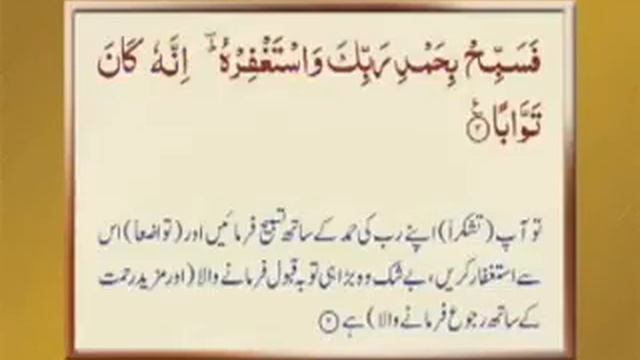 فَسَبِّحْ بِحَمْدِ رَبِّكَ وَاسْتَغْفِرْهُ ؕؔ اِنَّهٗ كَانَ
تَوَّابًا ۠﴿۳﴾
تو آپ (تشکراً) اپنے رب کی حمد کے ساتھ تسبیح فرمائیں اور (تواضعاً) اس
سے استغفار کریں، بے شک وہ بڑا ہی توبہ قبول فرمانے والا (اور مزید رحمت
کے ساتھ رجوع فرمانے والا) ہے